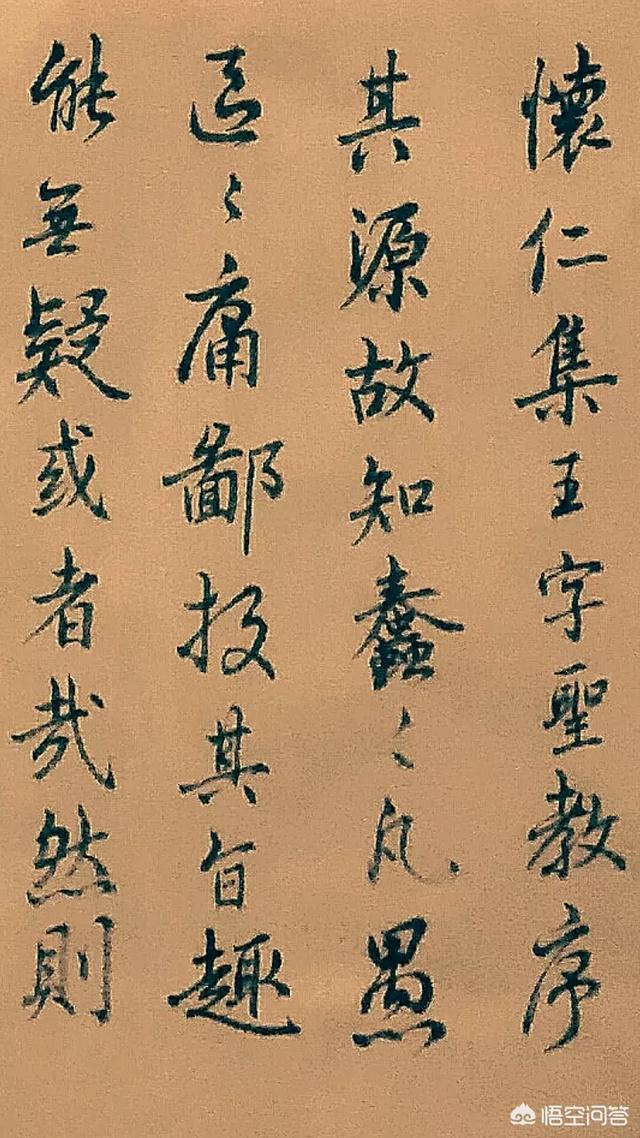 懷仁集王字聖教序
其源故知蠢々凡愚
區々庸鄙投其旨趣
能無疑或者哉然則
悟空问答